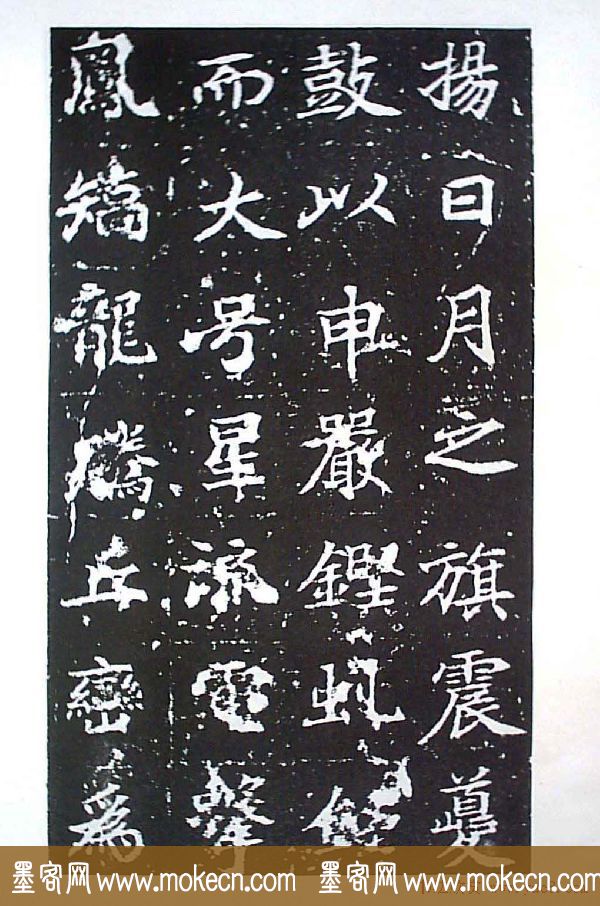 揚日月之旗震夔
鼓以申嚴鏗虬
而大号星流電擊
鳳矯龍騰丘巒為
墨客网 www.mokecn.com 墨客网 www.mokecn.com